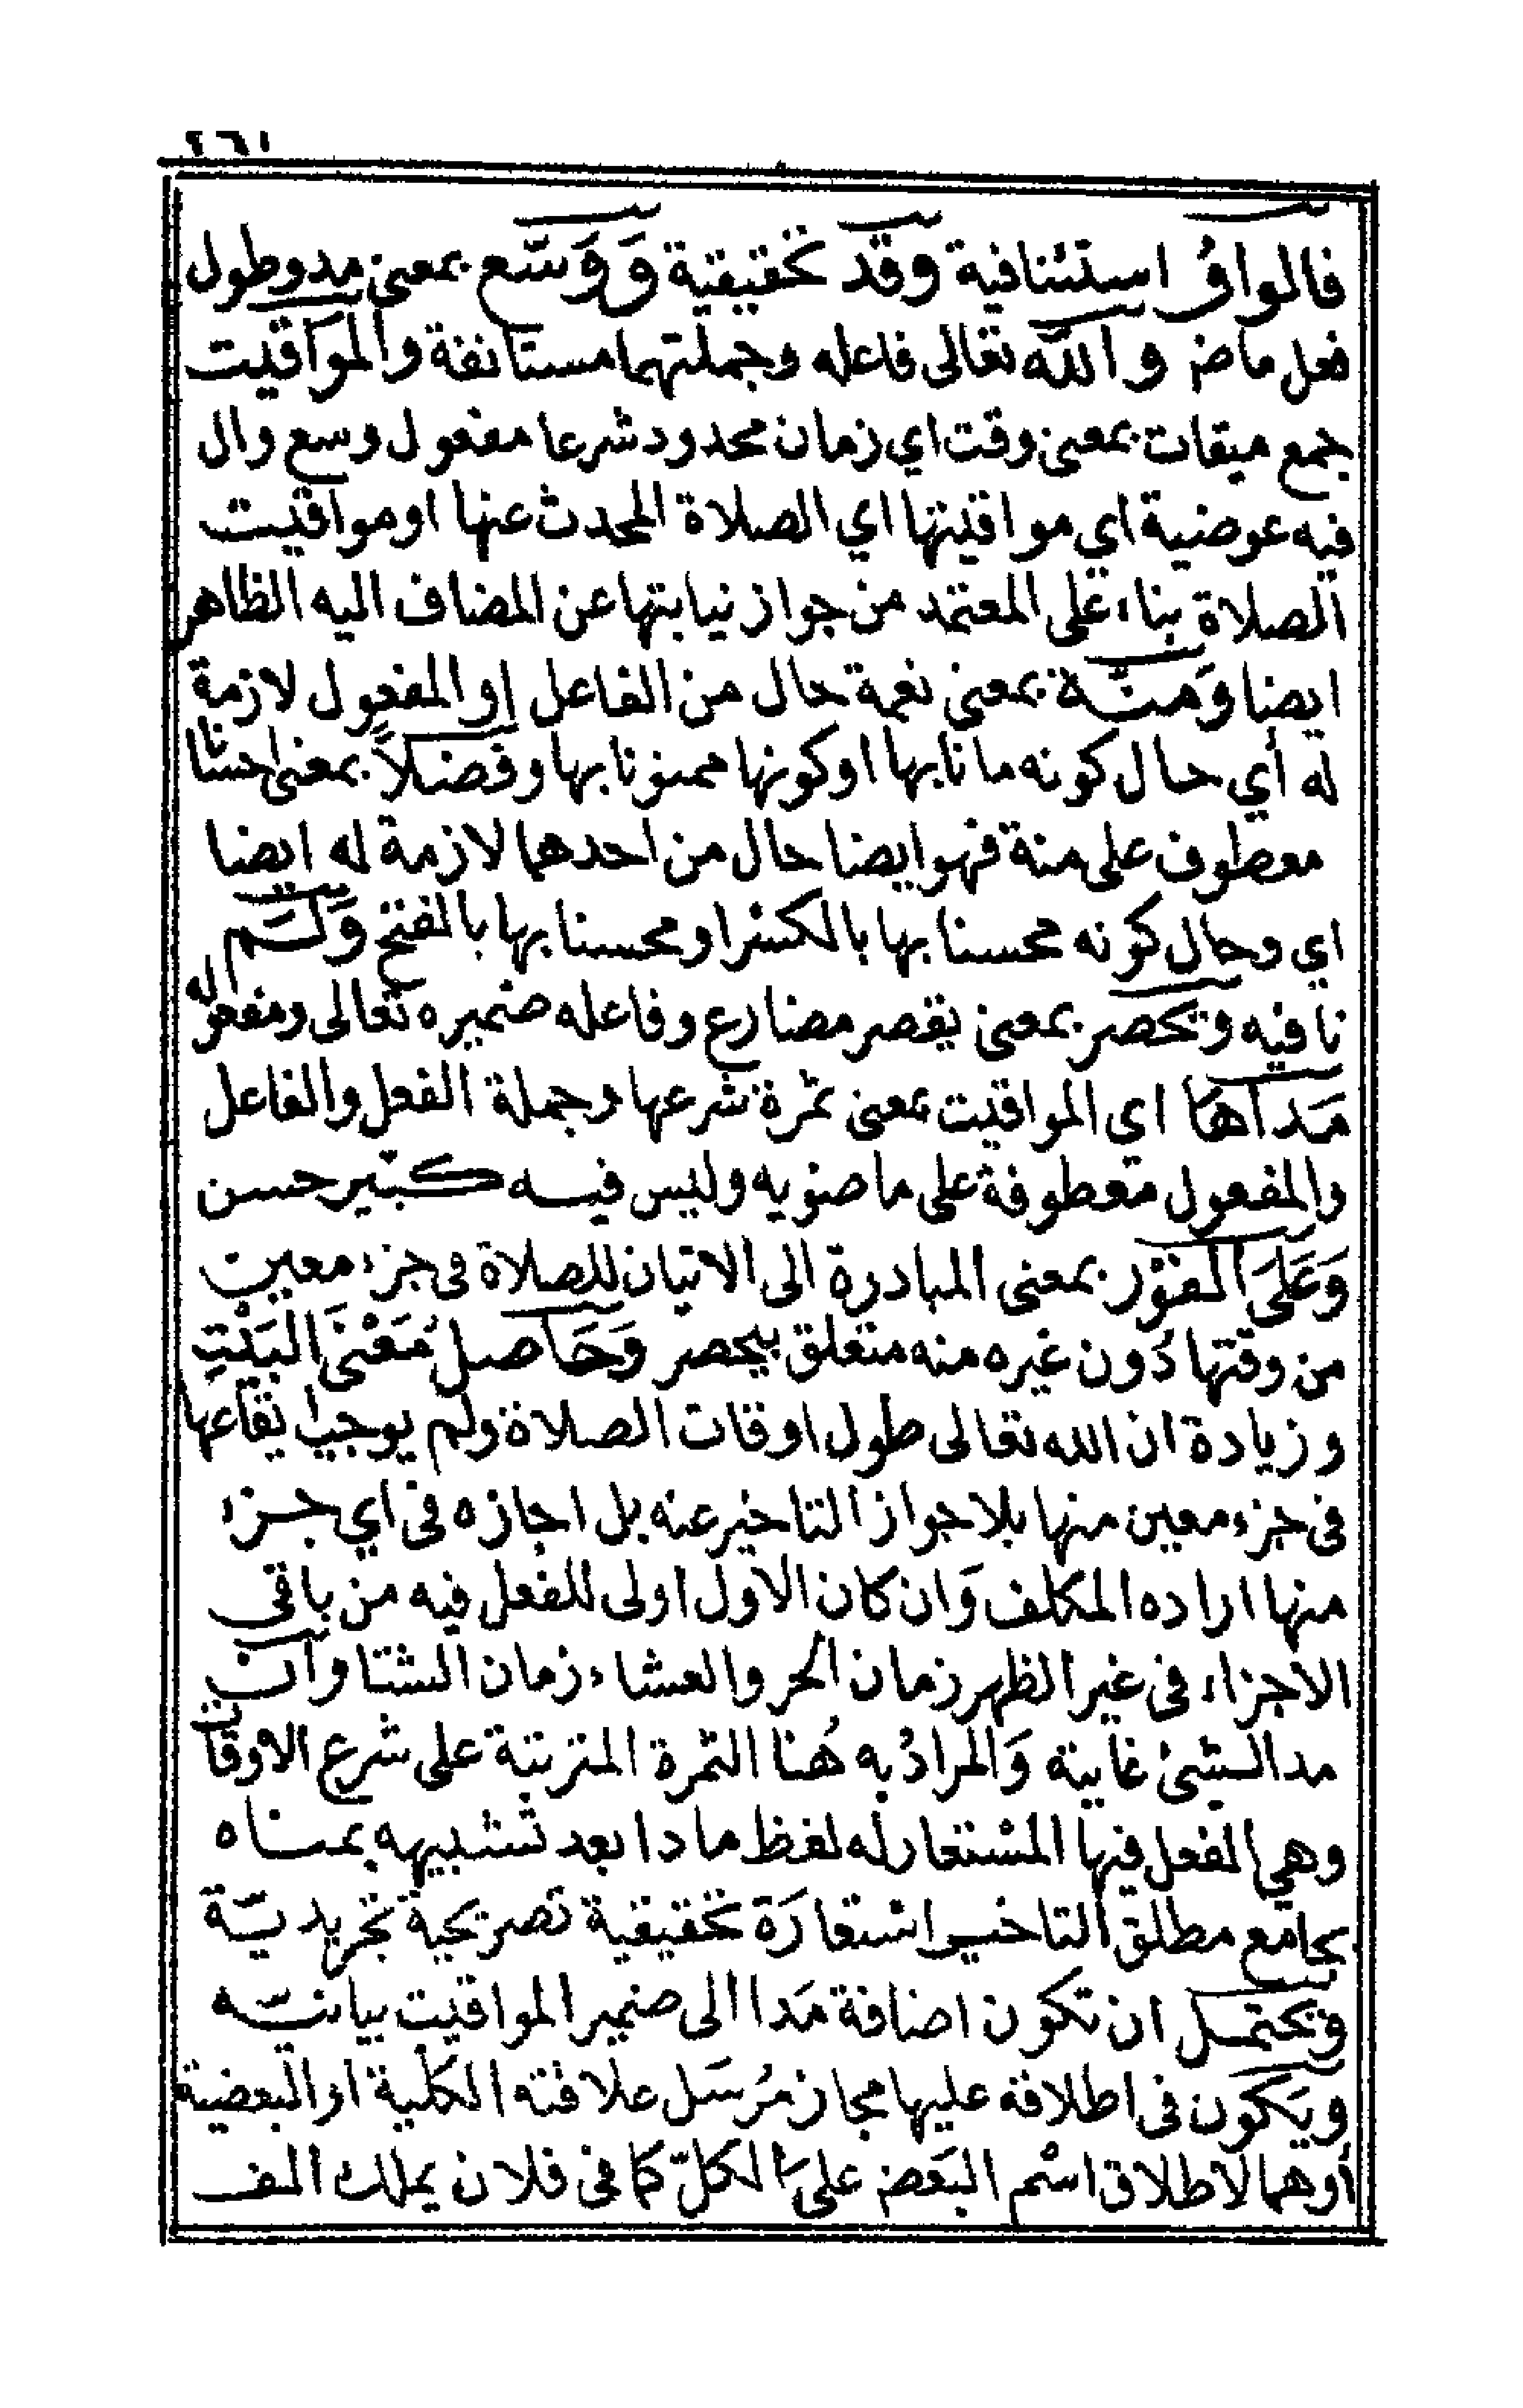 ٢٦١
فالواو استئنافية وقد تحقيقية وَوَسَّع بمعنى مد وطول
فعل ماض والله تعالى فاعله وجملتهما مستانفة والمواقيت
جمع ميقات بمعنى وقت اي زمان محدود شرعا مفعول وسع وال
فيه عوضية اي مواقيتها اي الصلاة المحدث عنها او مواقيت
الصلاة بناء على المعتمد من جواز نيابتها عن المضاف اليه الظاهر
ايضا وَمنَّة بمعنى نعمة حال من الفاعل او المفعول لازمة
له أي حال كونه مانا بها او كونها ممنونا بها وفضلاً بمعنى احسانا
معطوف على منة فهو ايضا حال من احدهما لازمة له ايضا
اي وحال كونه محسنا بها بالكسر او محسنا بها بالفتح وَلَم
نافيه ويحصر بمعنى يقصر مضارع وفاعله ضميره تعالى ومفعوله
مَداها اي المواقيت بمعنى ثمرة شرعها وجملة الفعل والفاعل
والمفعول معطوفة على ماضويه وليس فيه كبير حسن
وَعَلَى الفَوْر بمعنى المبادرة الى الاتيان للصلاة فى جزء معين
من وقتها دُون غيره منه متعلق بيحصر وَحَاصلُ مَعْنَى البَيْتِ
وزيادة ان الله تعالى طول اوقات الصلاة ولم يوجب ايقاعها
فى جزء معين منها بلا جواز التاخير عنه بل اجازه فى اي جزء
منها اراده المكلف وَان كان الاول اولى للفعل فيه من باقي
الاجزاء فى غير الظهر زمان الحر والعشاء زمان الشتا وان
مدا الشيئ غايته وَالمرادُ به هُنا الثمرة المترتبة على شرع الاوقات
وهي الفعل فيها المستعار له لفظ مادا بعد تشبيهه بمسناه
بجامع مطلق التاخير استعارَة تحقيقية تصريحية تجريديّة
ويحتمل ان تكون اضافة مَدا الى ضمير المواقيت بيانيّه
ويَكون فى اطلاقه عليها مجاز مُرسَل علاقته الكلية او البعضية
أوهما لاطلاق اسْم البَعض علىَ الكلّ كما فى فلان يملك الف